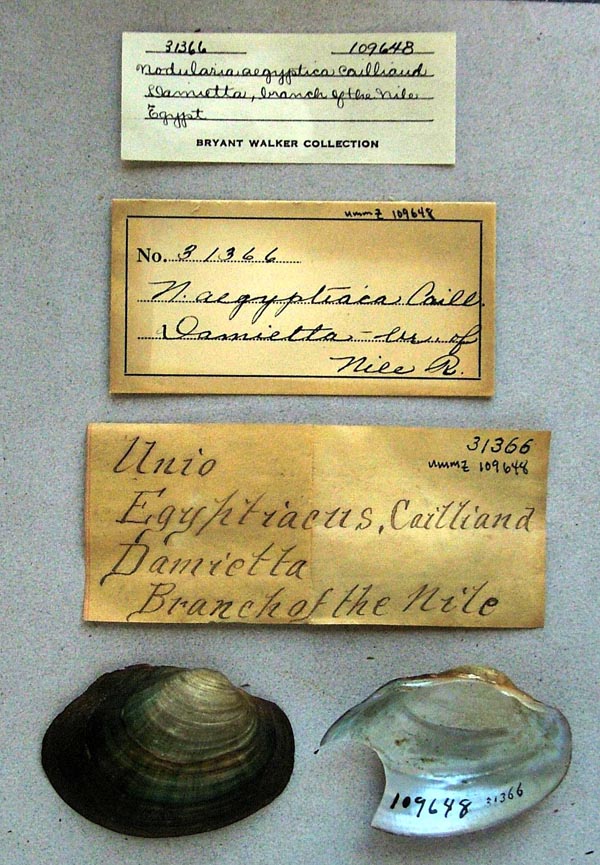 31366 109648
Nodularia aegyptica Cailliaud
Damietta, branch of the Nile
Egypt
BRYANT WALKER COLLECTION
ummz 109648
No. 31366
N. aegyptiaca Caill.
Damietta - br. of
Nile R.
31366
ummz 109648
Unio
Egyptiacus, Cailliand
Damietta
Branch of the Nile
109648 31366